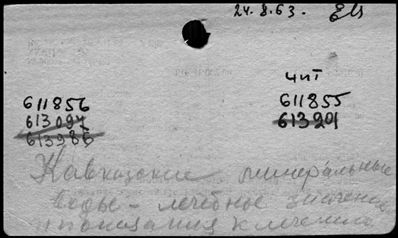 24.8.63.
чит
611856
611855
613097
613201
613986
Кавказские минеральные
воды - лечебное значение
и показания к лечению